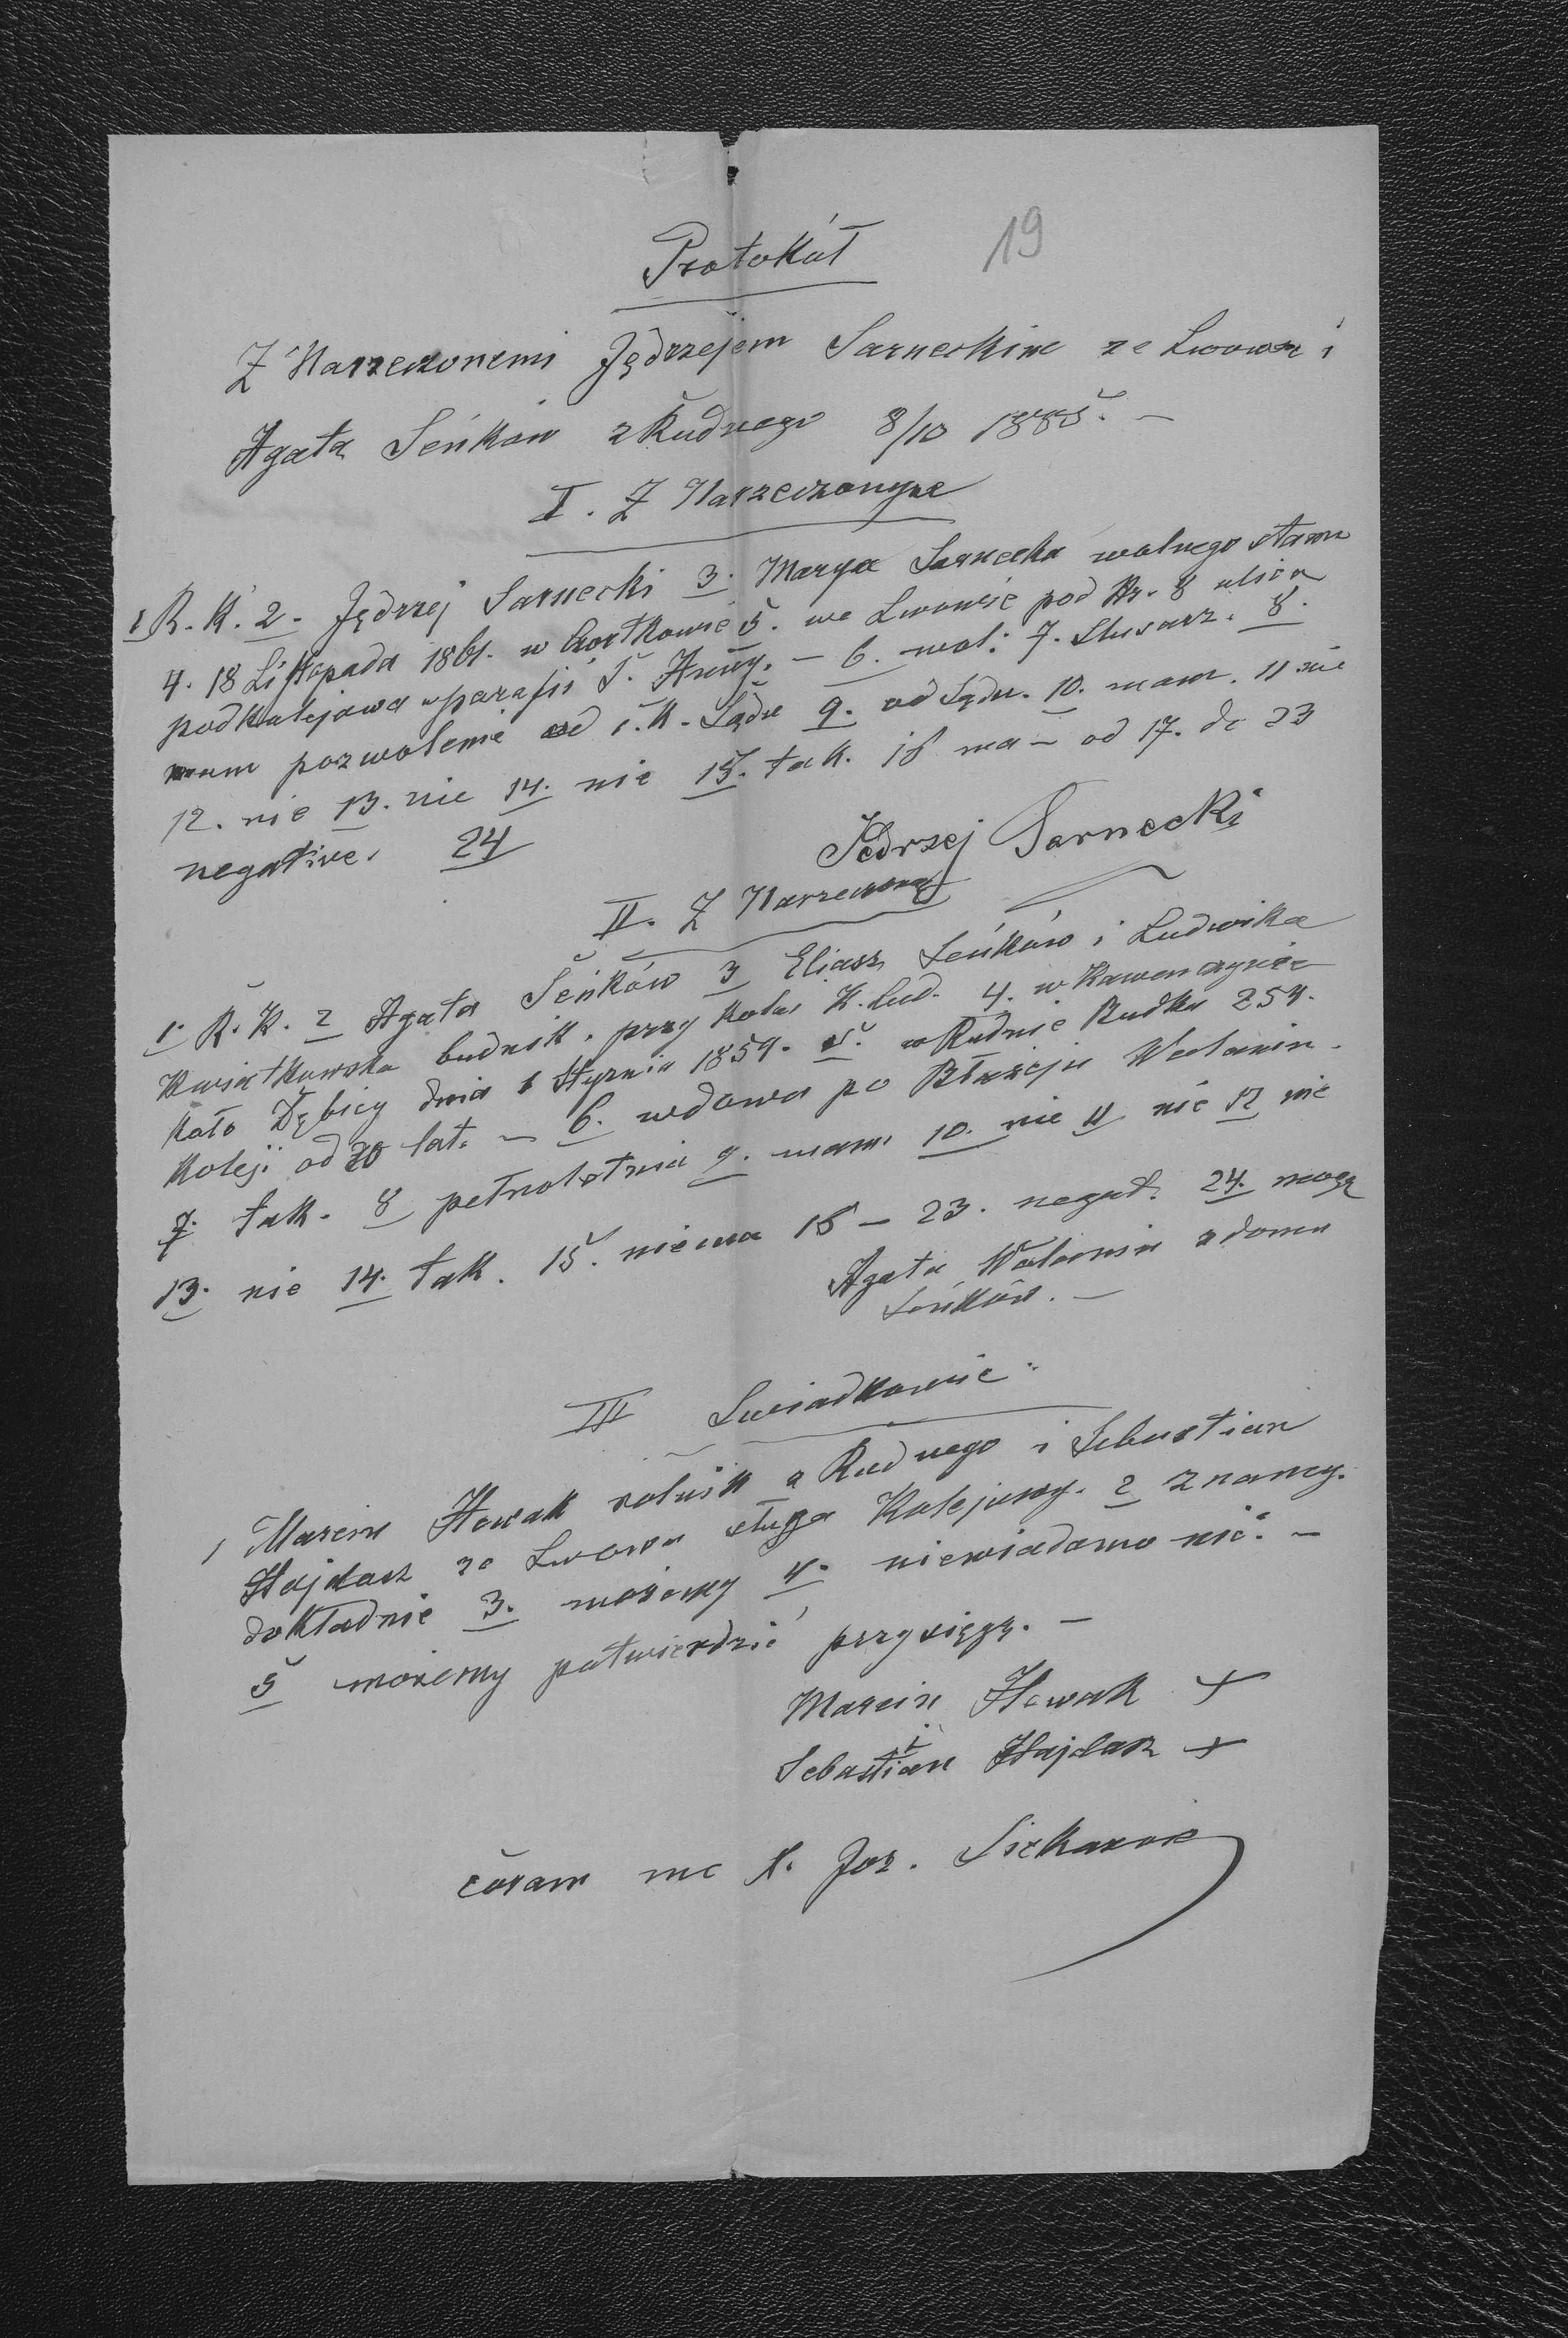 Protokół 19
Z Narzeczonemi Jędrzejem Sarneckim ze Lwowa i
Agatą Seńków z Rudnego 8/10 1885. —
I. Z Narzeczonym
1 R. K. 2. Jędrzej Sarnecki 3. Marya Sarnecka wolnego stanu
4. 18 Listopada 1861. w 5. we Lwowie pod Nr. 8 ulica
podkolejowa w parafii Ś. Anny. — 6. wol: 7. Slusarz. 8.
mam pozwolenie od c. K. Sądu 9. od Sądu. 10. mam. 11 nie
12. nie 13. nie 14. nie 15. tak. 16 ma — od 17. do 23
negative. 24
Jędrzej Sarnecki
II. Z Narzeczoną
1. R. K. 2 Agata Seńków 3 Eliasz Seńków i Ludwika
Kwiatkowska budnik. przy kolei K. Lud. 4. w
koło Dębicy dnia 6 Stycznia 1859. 5. w Rudnie Budka 254.
Koleji od 20 lat. — 6. wdowa po Błażeju Walanin.
7. tak. 8 pełnoletnia 9. mam 10. nie 11 nie 12 nie
13. nie 14. tak. 15. niema 16 — 23. negat. 24. mogę
Agata Walanin z domu
Seńków. —
III Swiadkowie:
1 Marcin Nowak rolnik z Rudnego i Sebastian
Hajdasz ze Lwowa sługa Kolejowy. 2 znamy.
dokładnie 3. możemy 4. niewiadomo nic. —
5 możemy potwierdzić przysięgą. —
Marcin Nowak +
i
Sebastian Hajdasz +
coram me X. Joz.